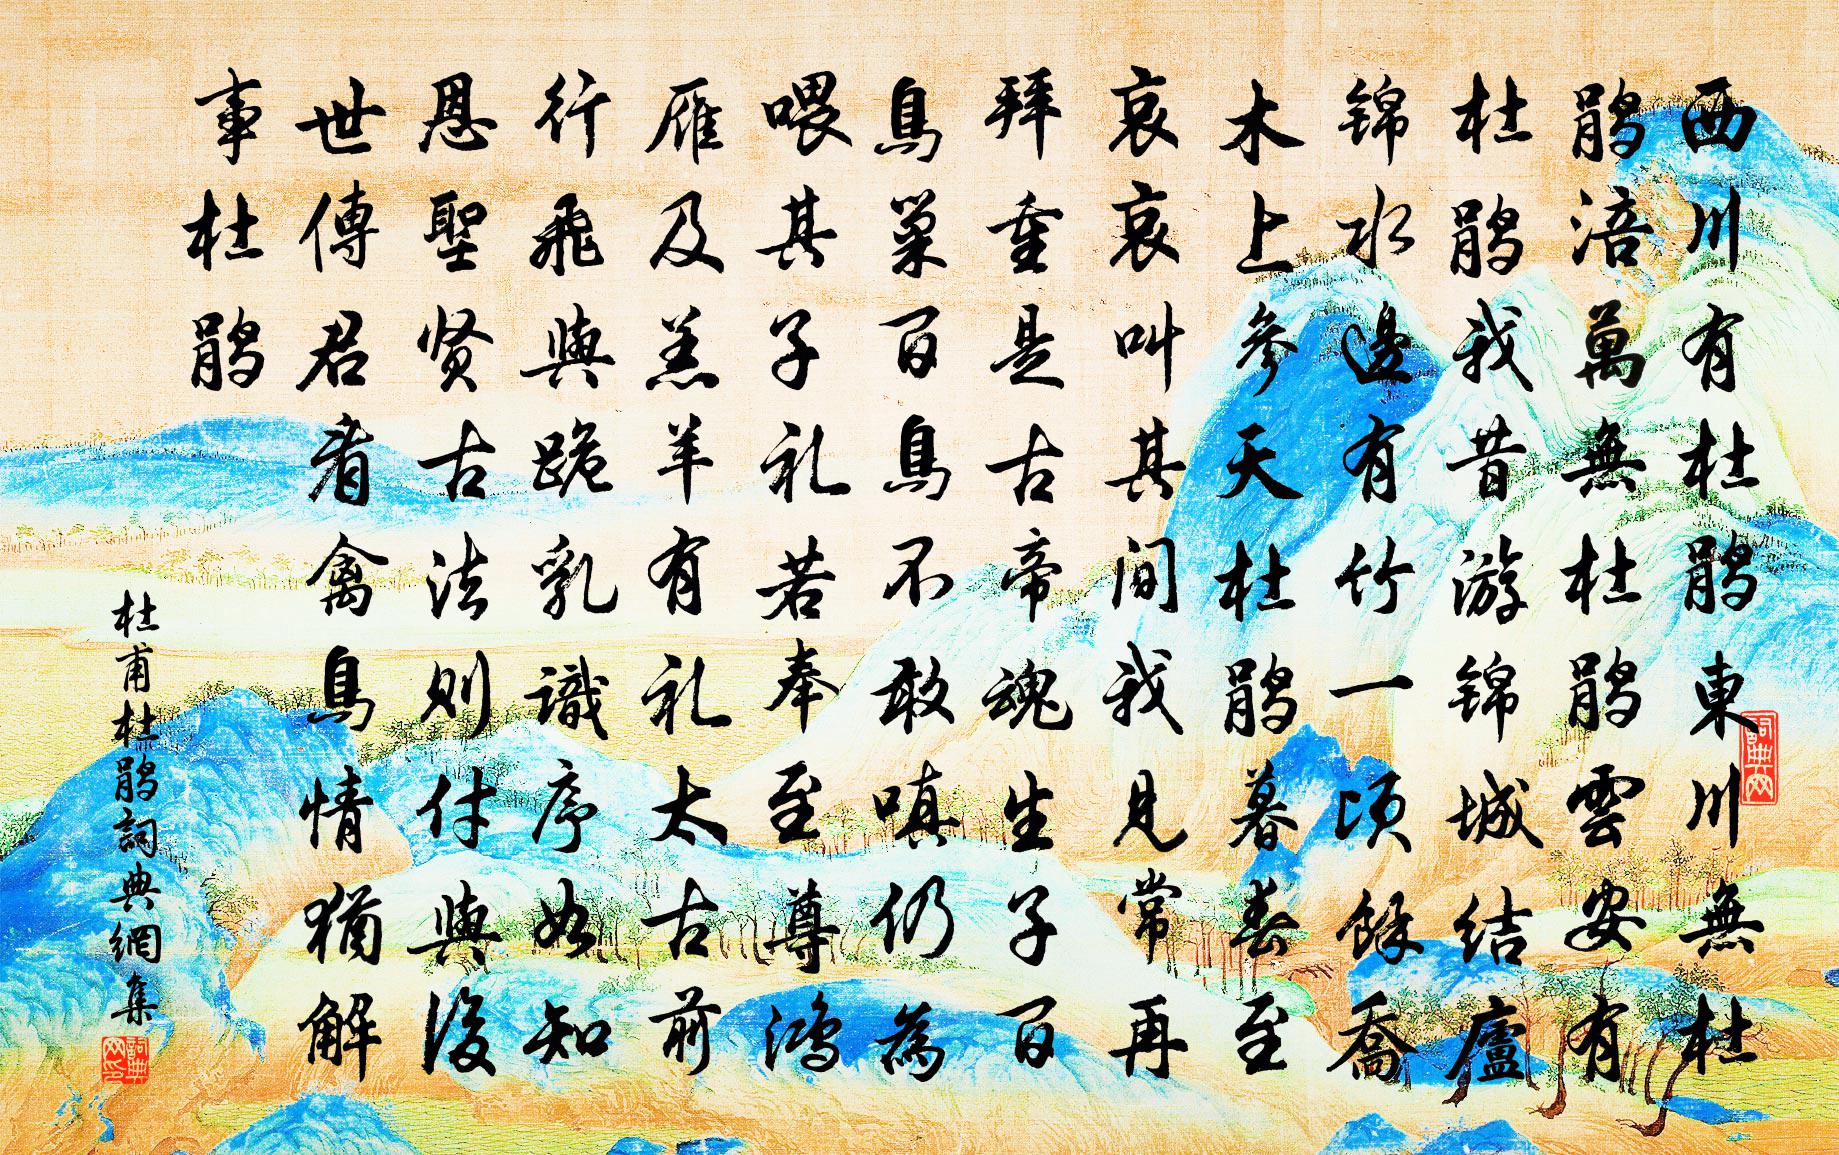 西川有杜鹃東川無杜
鹃涪萬無杜鹃雲安有
杜鹃我昔游锦城结廬
锦水邊有竹一頃餘喬
木上參天杜鹃暮春至
哀哀叫其间我見常再
拜重是古帝魂生子百
鳥巢百鳥不敢嗔仍為
喂其子礼若奉至尊鸿
雁及羔羊有礼太古前
行飛與跪乳識序如知
恩聖贤古法则付與後
世傳君看禽鳥情猶解
事杜鹃
杜甫杜鹃詞典網集
詞典网
詞典网印